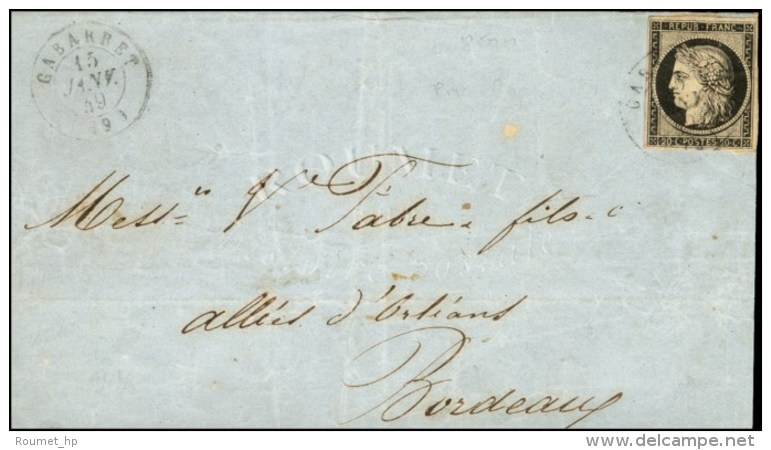 GABARRET
15
JANV.
49
REPUB. FRANC.
20.C POSTES 20.C
Mess.rs Ve Fabre & fils
allées d'Orléans
Bordeaux
Roumet_hp
delcampe.net